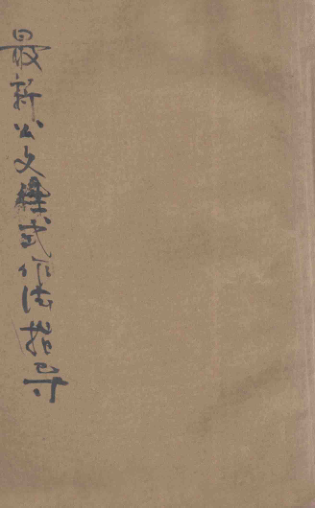 最新公文程式作法指导